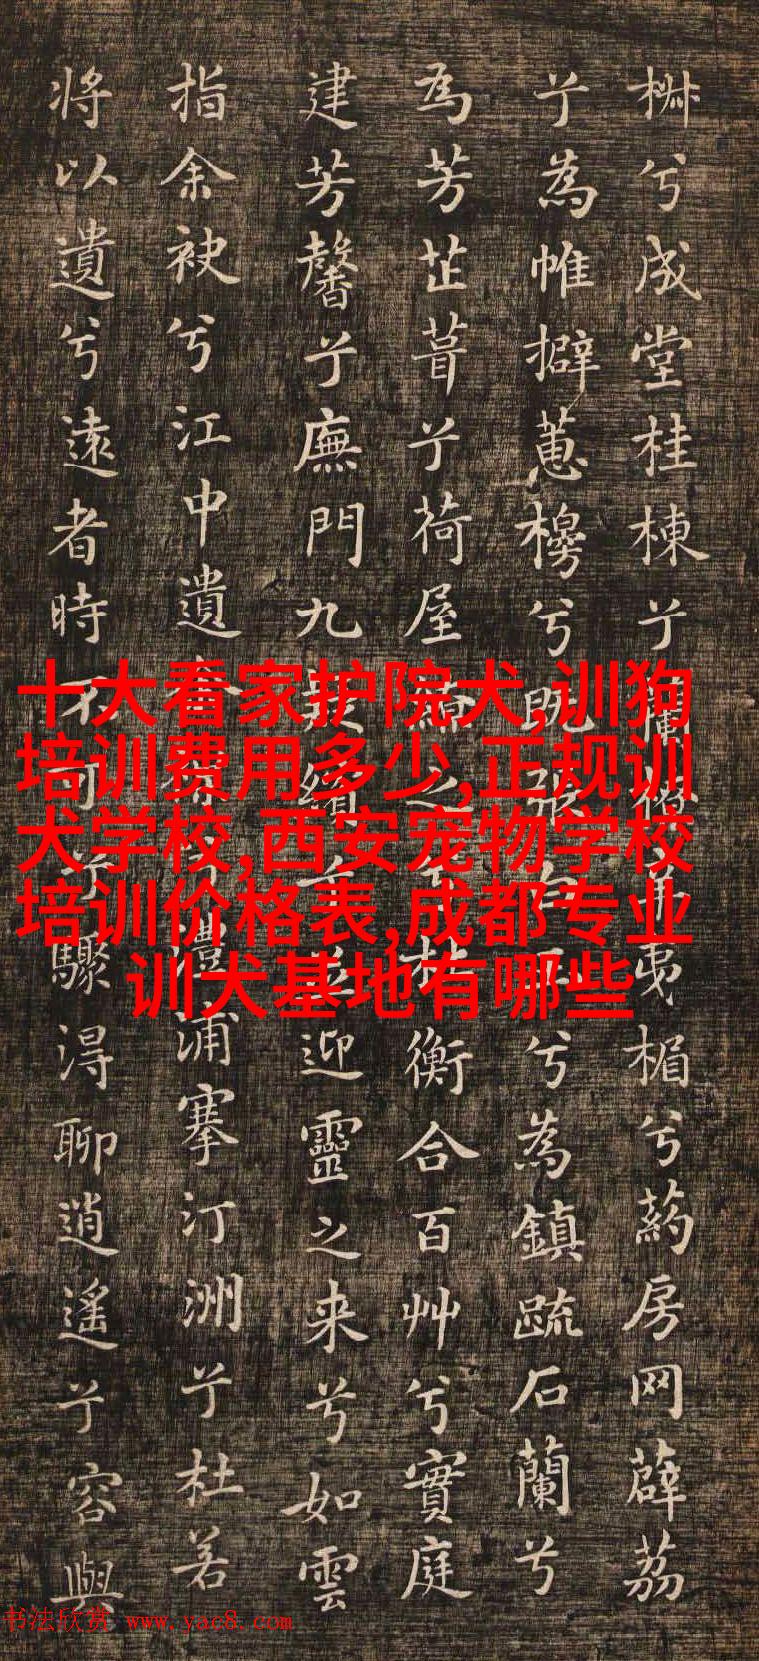 兮成堂桂棟兮蘭橑夷楣兮葯房网薜荔
兮為帷擗蕙櫋兮既張白玉兮為鎮疏石蘭兮
為芳芷葺兮荷屋繚之兮杜衡合百艸兮實庭
建芳馨兮廡門九嶷繽兮並迎靈之来兮如雲
指余袂兮江中遺余兮澧浦搴汀洲兮杜若
將以遺兮遠者時不可兮驟得聊逍遙兮容與
十大看家护院犬,训狗
培训费用多少,正规训
犬学校,西安宠物学校
培训价格表,成都专业
训犬基地有哪些
书法欣赏 www.yac8.com